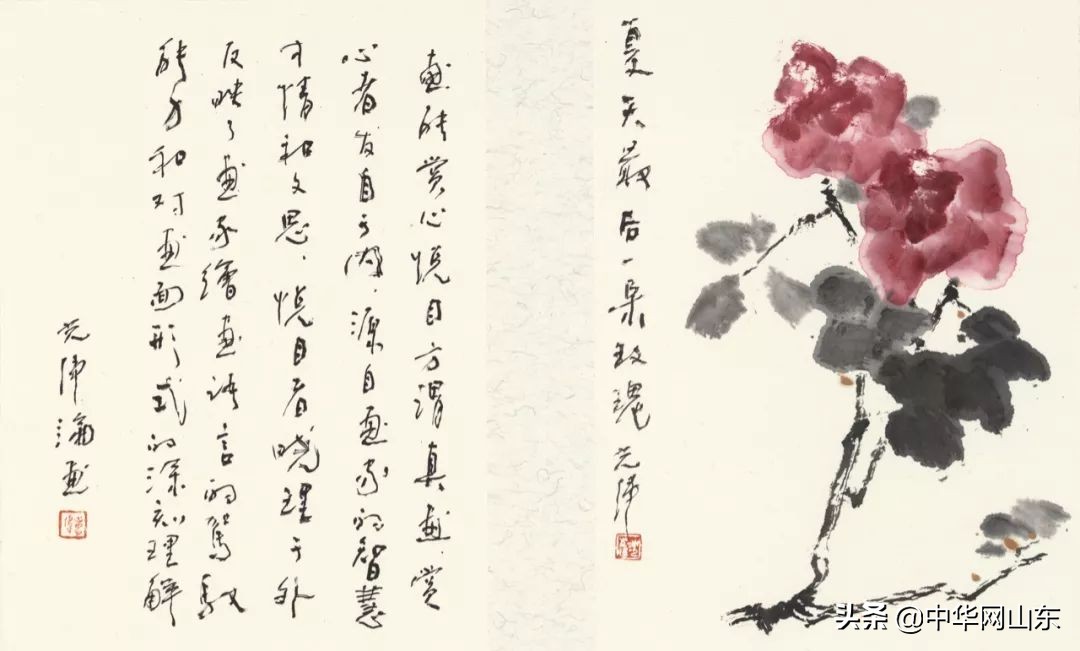 夏天最后一朵玫瑰
画能赏心悦目方谓真画,赏
心者发自于内,源自画家的智慧
才情和文思,悦目者晓理于外
反映了画家繪画语言的驾驭
能力和对画面形式的深刻理解
头条 @中华网山东